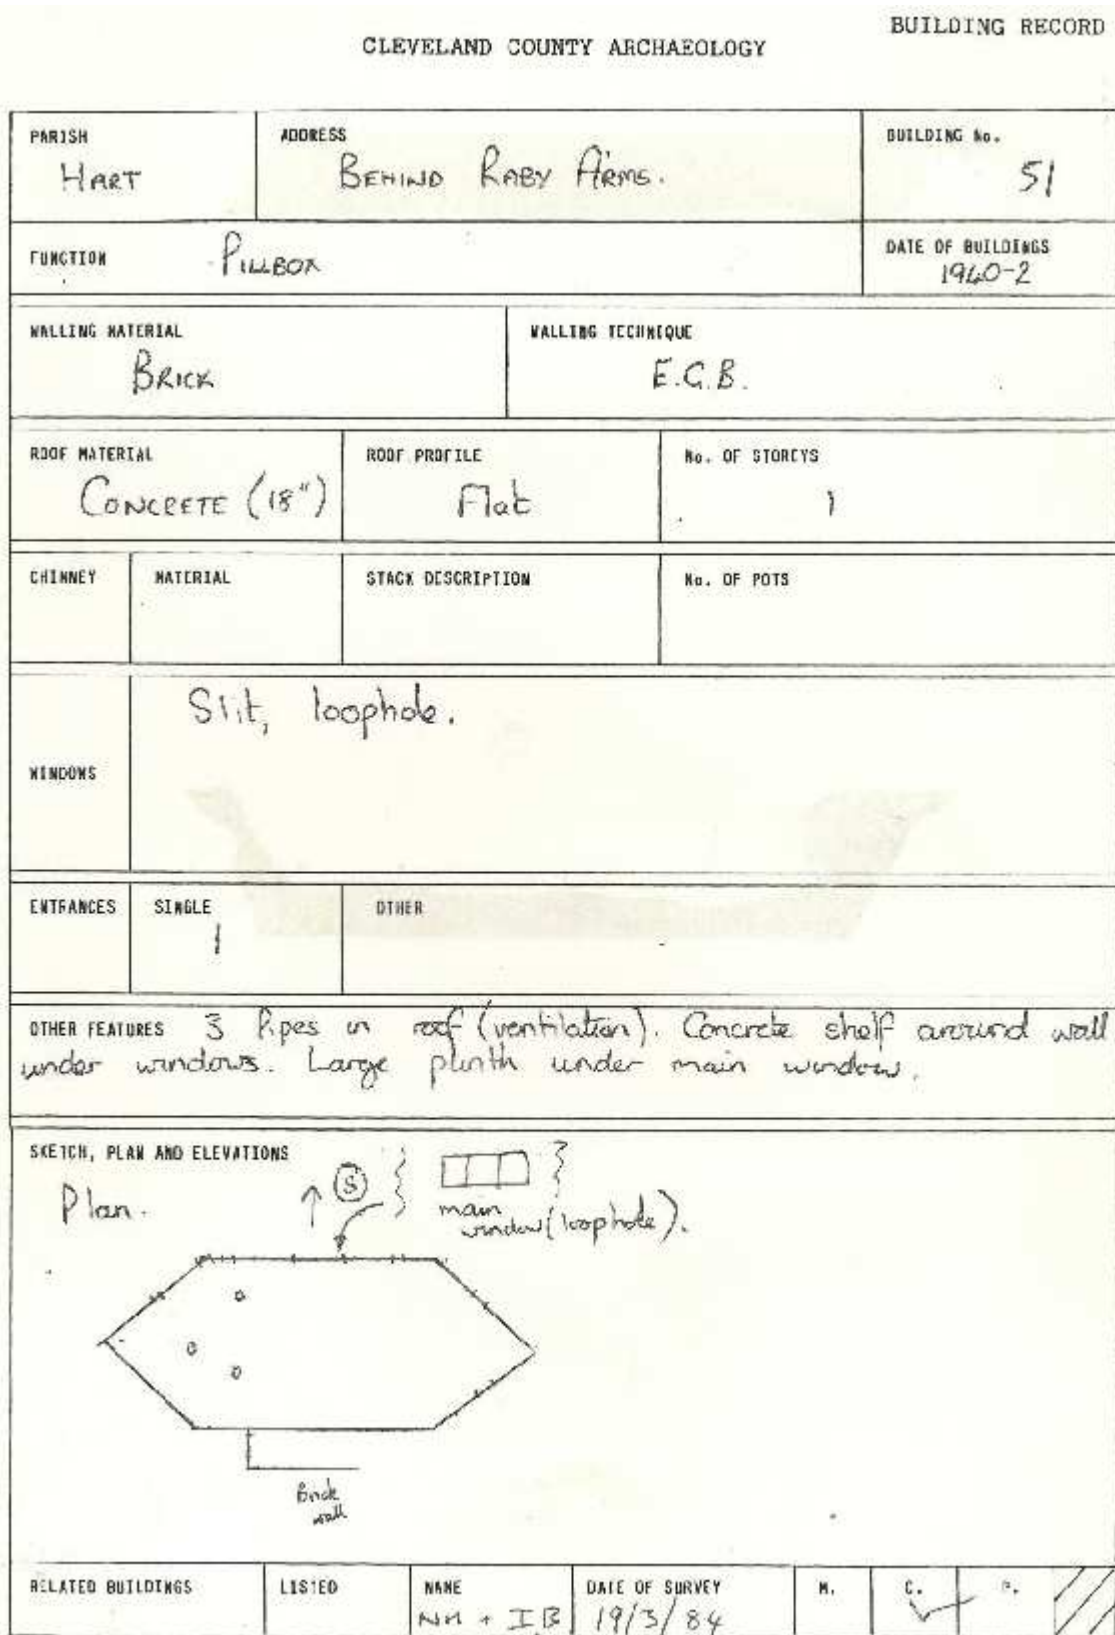 BUILDING RECORD
CLEVELAND COUNTY ARCHAEOLOGY
PARISH
HART
ADDRESS
BEHIND RABY ARMS.
BUILDING No.
51
FUNCTION
PILLBOX
DATE OF BUILDINGS
1940-2
WALLING MATERIAL
BRICK
WALLING TECHNIQUE
E.G.B.
ROOF MATERIAL
CONCRETE (18")
ROOF PROFILE
Flat
No. OF STOREYS
1
CHIMNEY
MATERIAL
STACK DESCRIPTION
No. OF POTS
WINDOWS
Slit, loophole.
ENTRANCES
SINGLE
1
OTHER
OTHER FEATURES 3 Pipes in roof (ventilation). Concrete shelf around wall
under windows. Large plinth under main window.
SKETCH, PLAN AND ELEVATIONS
Plan.
S
main
window (loophole).
Brick
wall
RELATED BUILDINGS
LISTED
NAME
NH + IB
DATE OF SURVEY
19/3/84
M.
C.